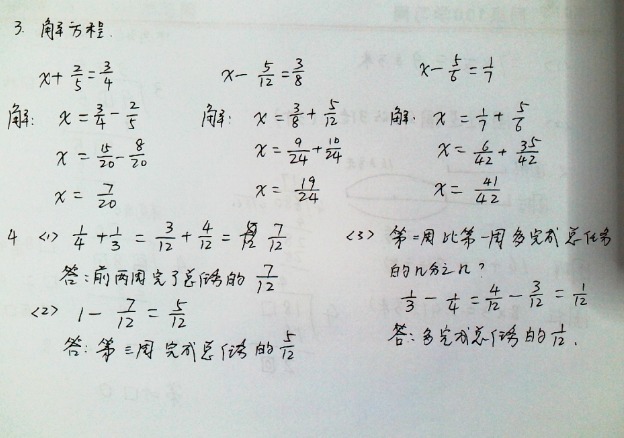 3. 解方程.
x+2/5=3/4
解: x=3/4-2/5
x=15/20-8/20
x=7/20
x-5/12=3/8
解: x=3/8+5/12
x=9/24+10/24
x=19/24
x-5/6=1/7
解. x=1/7+5/6
x=6/42+35/42
x=41/42
4 <1> 1/4+1/3=3/12+4/12=7/12
答:前两周完了总任务的7/12
<2> 1-7/12=5/12
答:第三周完成总任务的5/12
<3> 第二周比第一周多完成总任务
的几分之几?
1/3-1/4=4/12-3/12=1/12
答:多完成总任务的1/12.